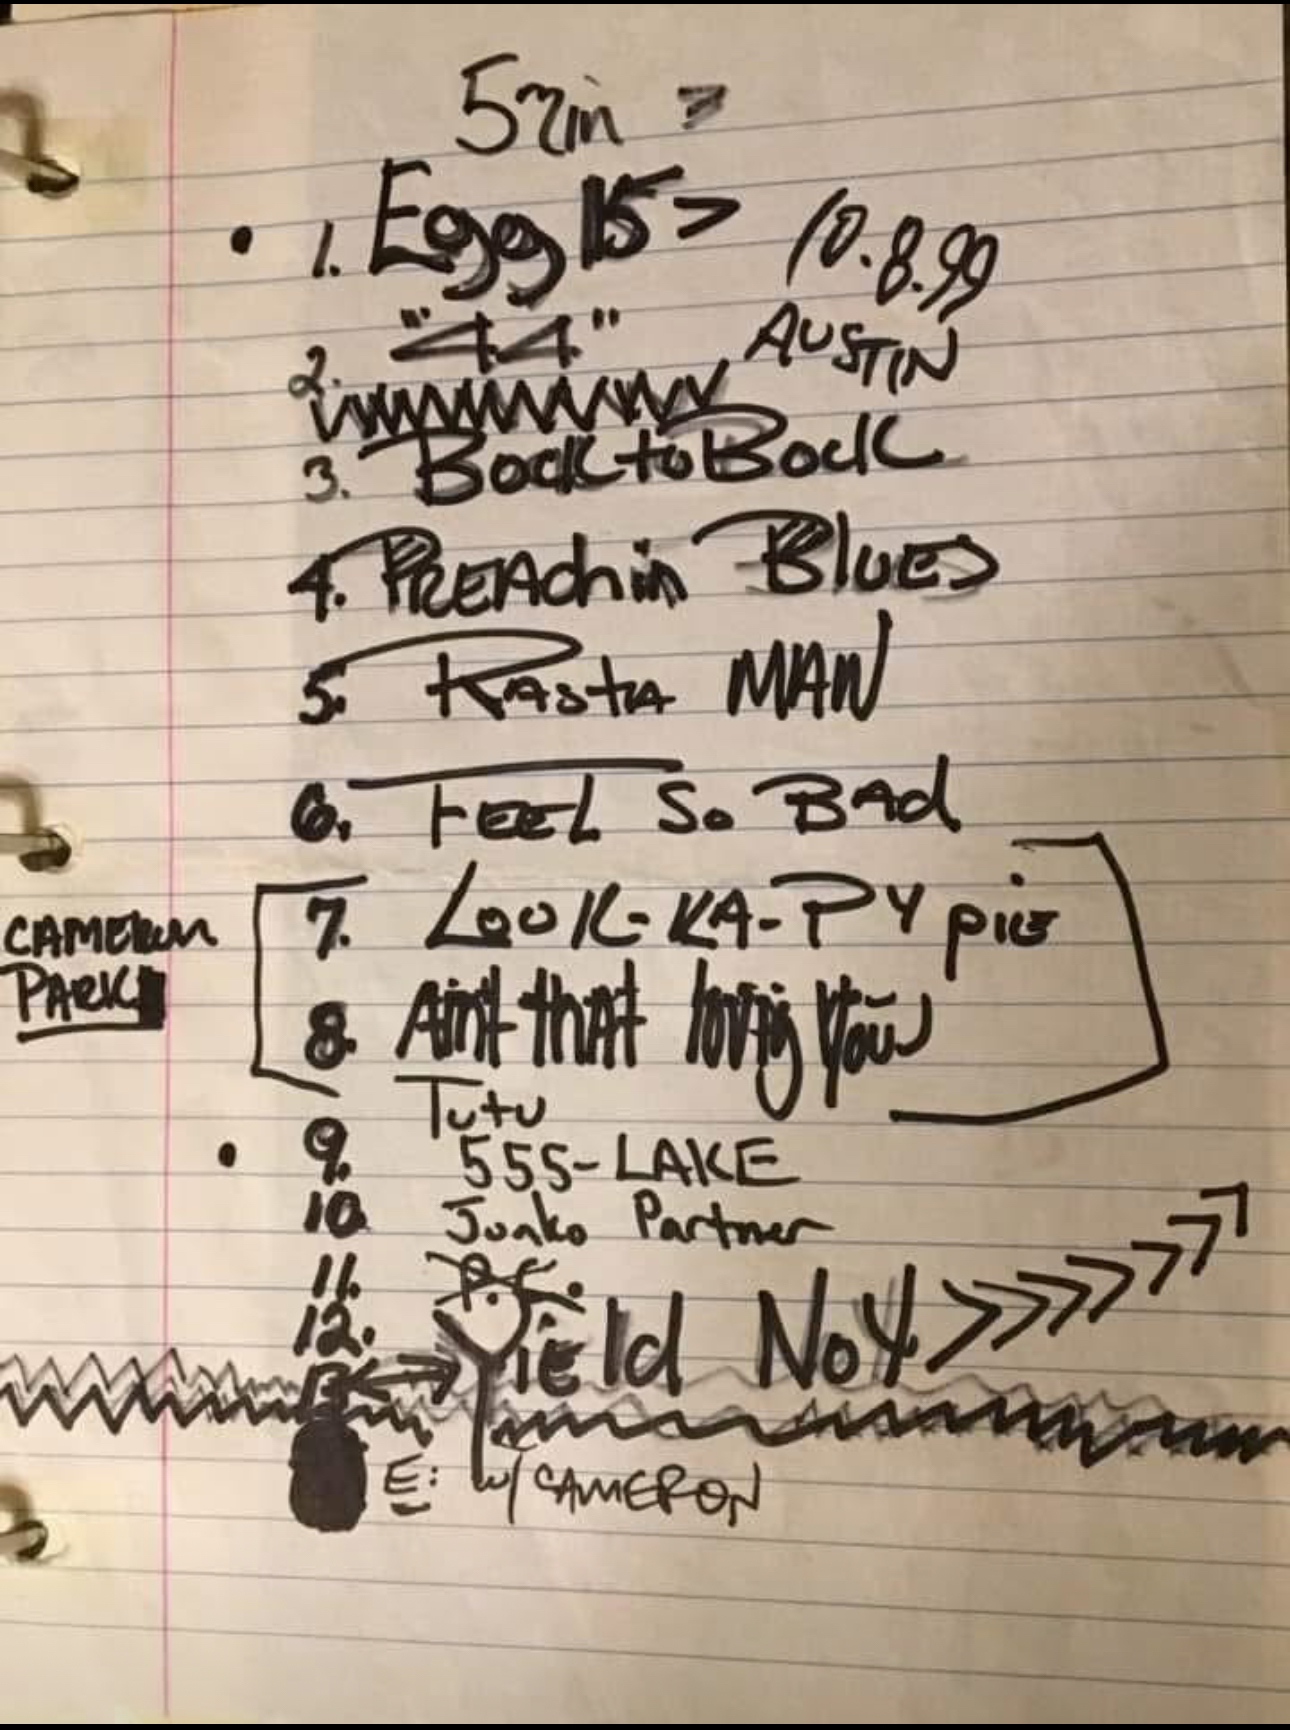 5min >
• 1. Egg 15 > 10.8.99
2. "44" AUSTIN
3. Back to Back
4. PREAchin BluES
5. RAstA MAN
6. FEEL So BAd
7. LooK-KA-PY piE
CAMERUN
PARK
8. Aint that loving You
Tutu
• 9. 555-LAKE
10. Junko Partner
11. P.C.
12. YiEld Not >>>>>>>
E: w/ CAMERON